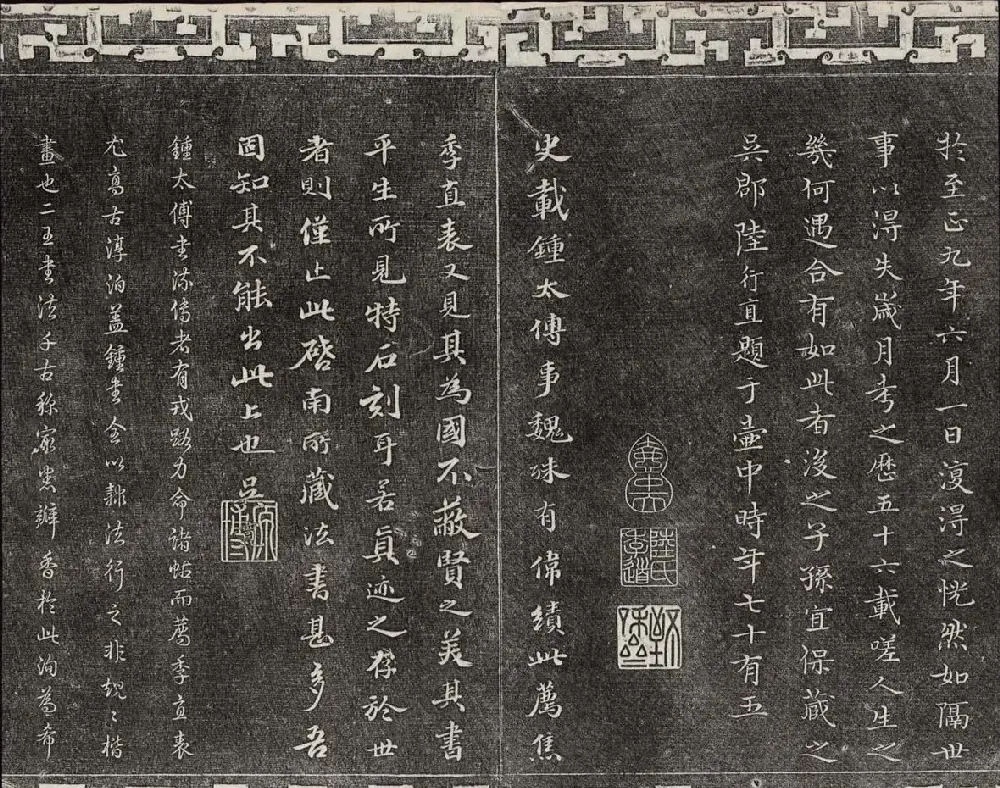 於至正九年六月一日復得之恍然如隔世
事以得失歲月考之歷五十六載嗟人生之
幾何遇合有如此者後之子孫宜保藏之
吳郡陸行直題于壺中時年七十有五
陸氏季道
史載鍾太傅事魏殊有偉績此薦焦
季直表又見其為國不蔽賢之美其書
平生所見特石刻耳若真迹之存於世
者則僅止此啓南所藏法書甚多吾
固知其不能出此上也吳
原博
鍾太傅書流傳者有戎路力命諸帖而薦季直表
尤高古淳泊蓋鍾書全以隸法行之非規〻楷
畫也二王書法千古稱家悉瓣香於此洵為希